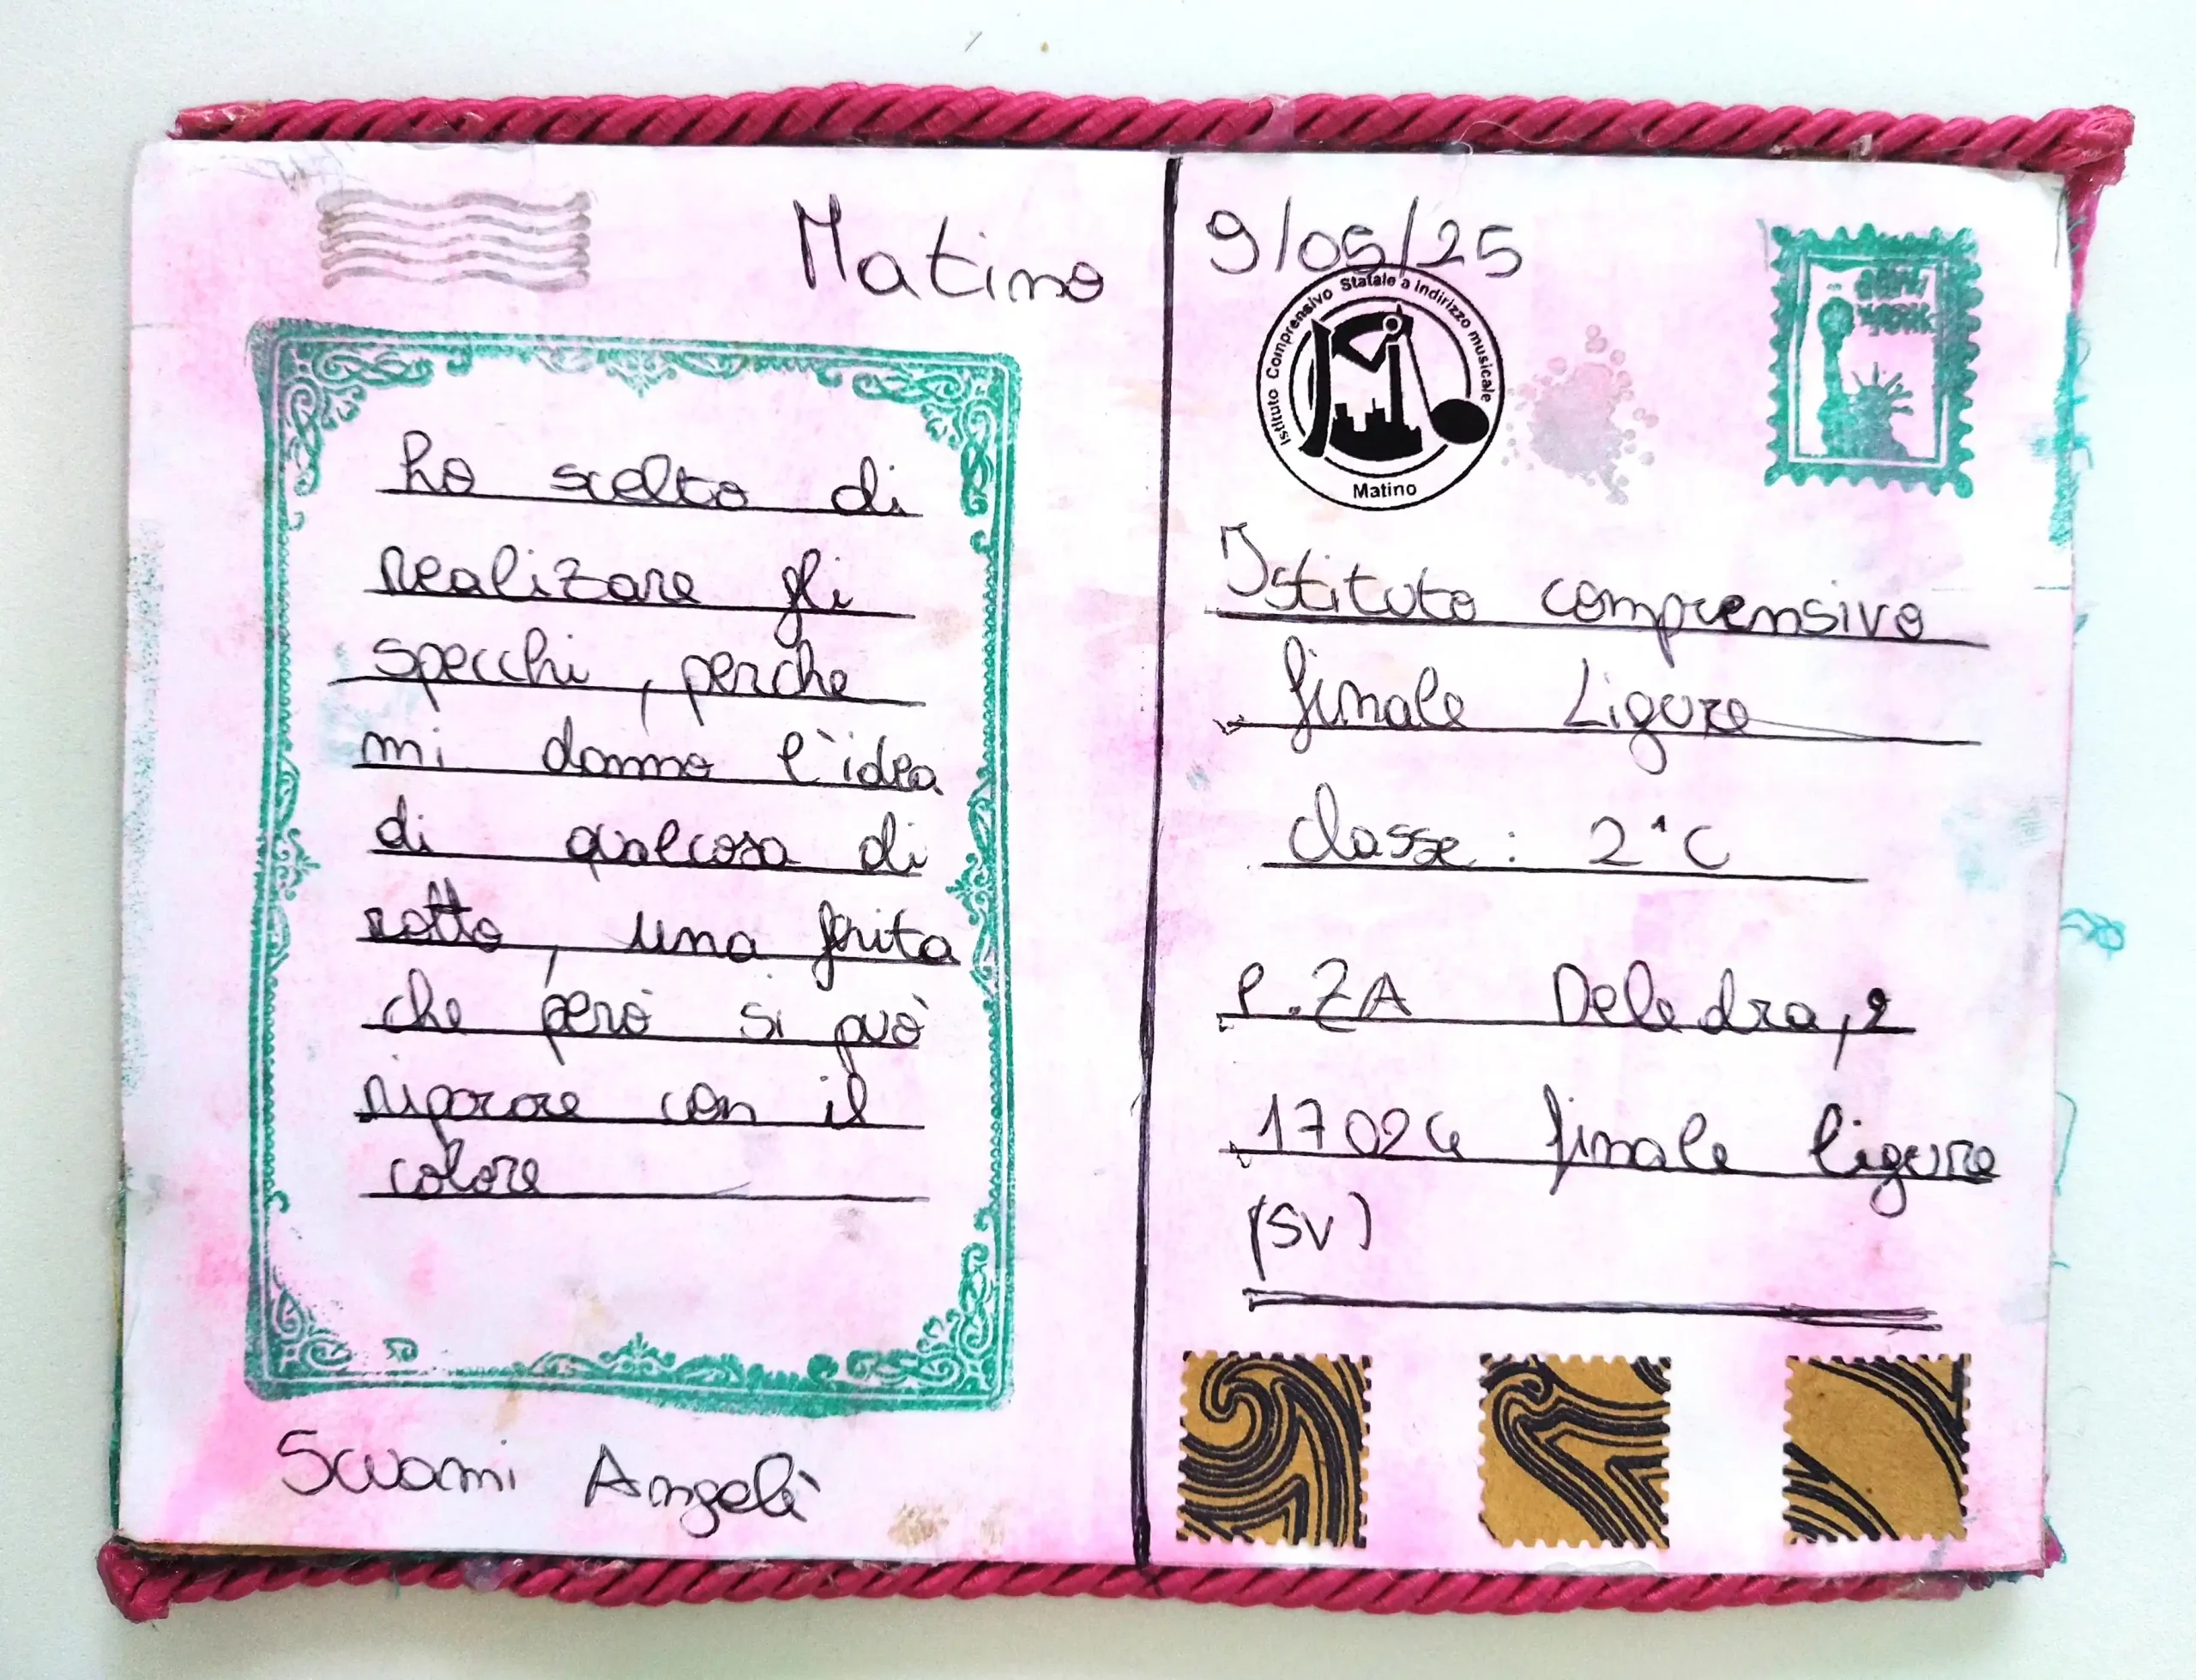 Matino
9/05/25
ho scelto di
realizare gli
specchi, perche
mi danno l'idea
di qualcosa di
rotto, una ferita
che però si può
riparare con il
colore
Swami Angelè
Istituto Comprensivo Statale a Indirizzo musicale
Matino
Istituto comprensivo
finale Ligure
classe: 2^C
P.ZA Deledda, 2
17024 finale ligure
(SV)